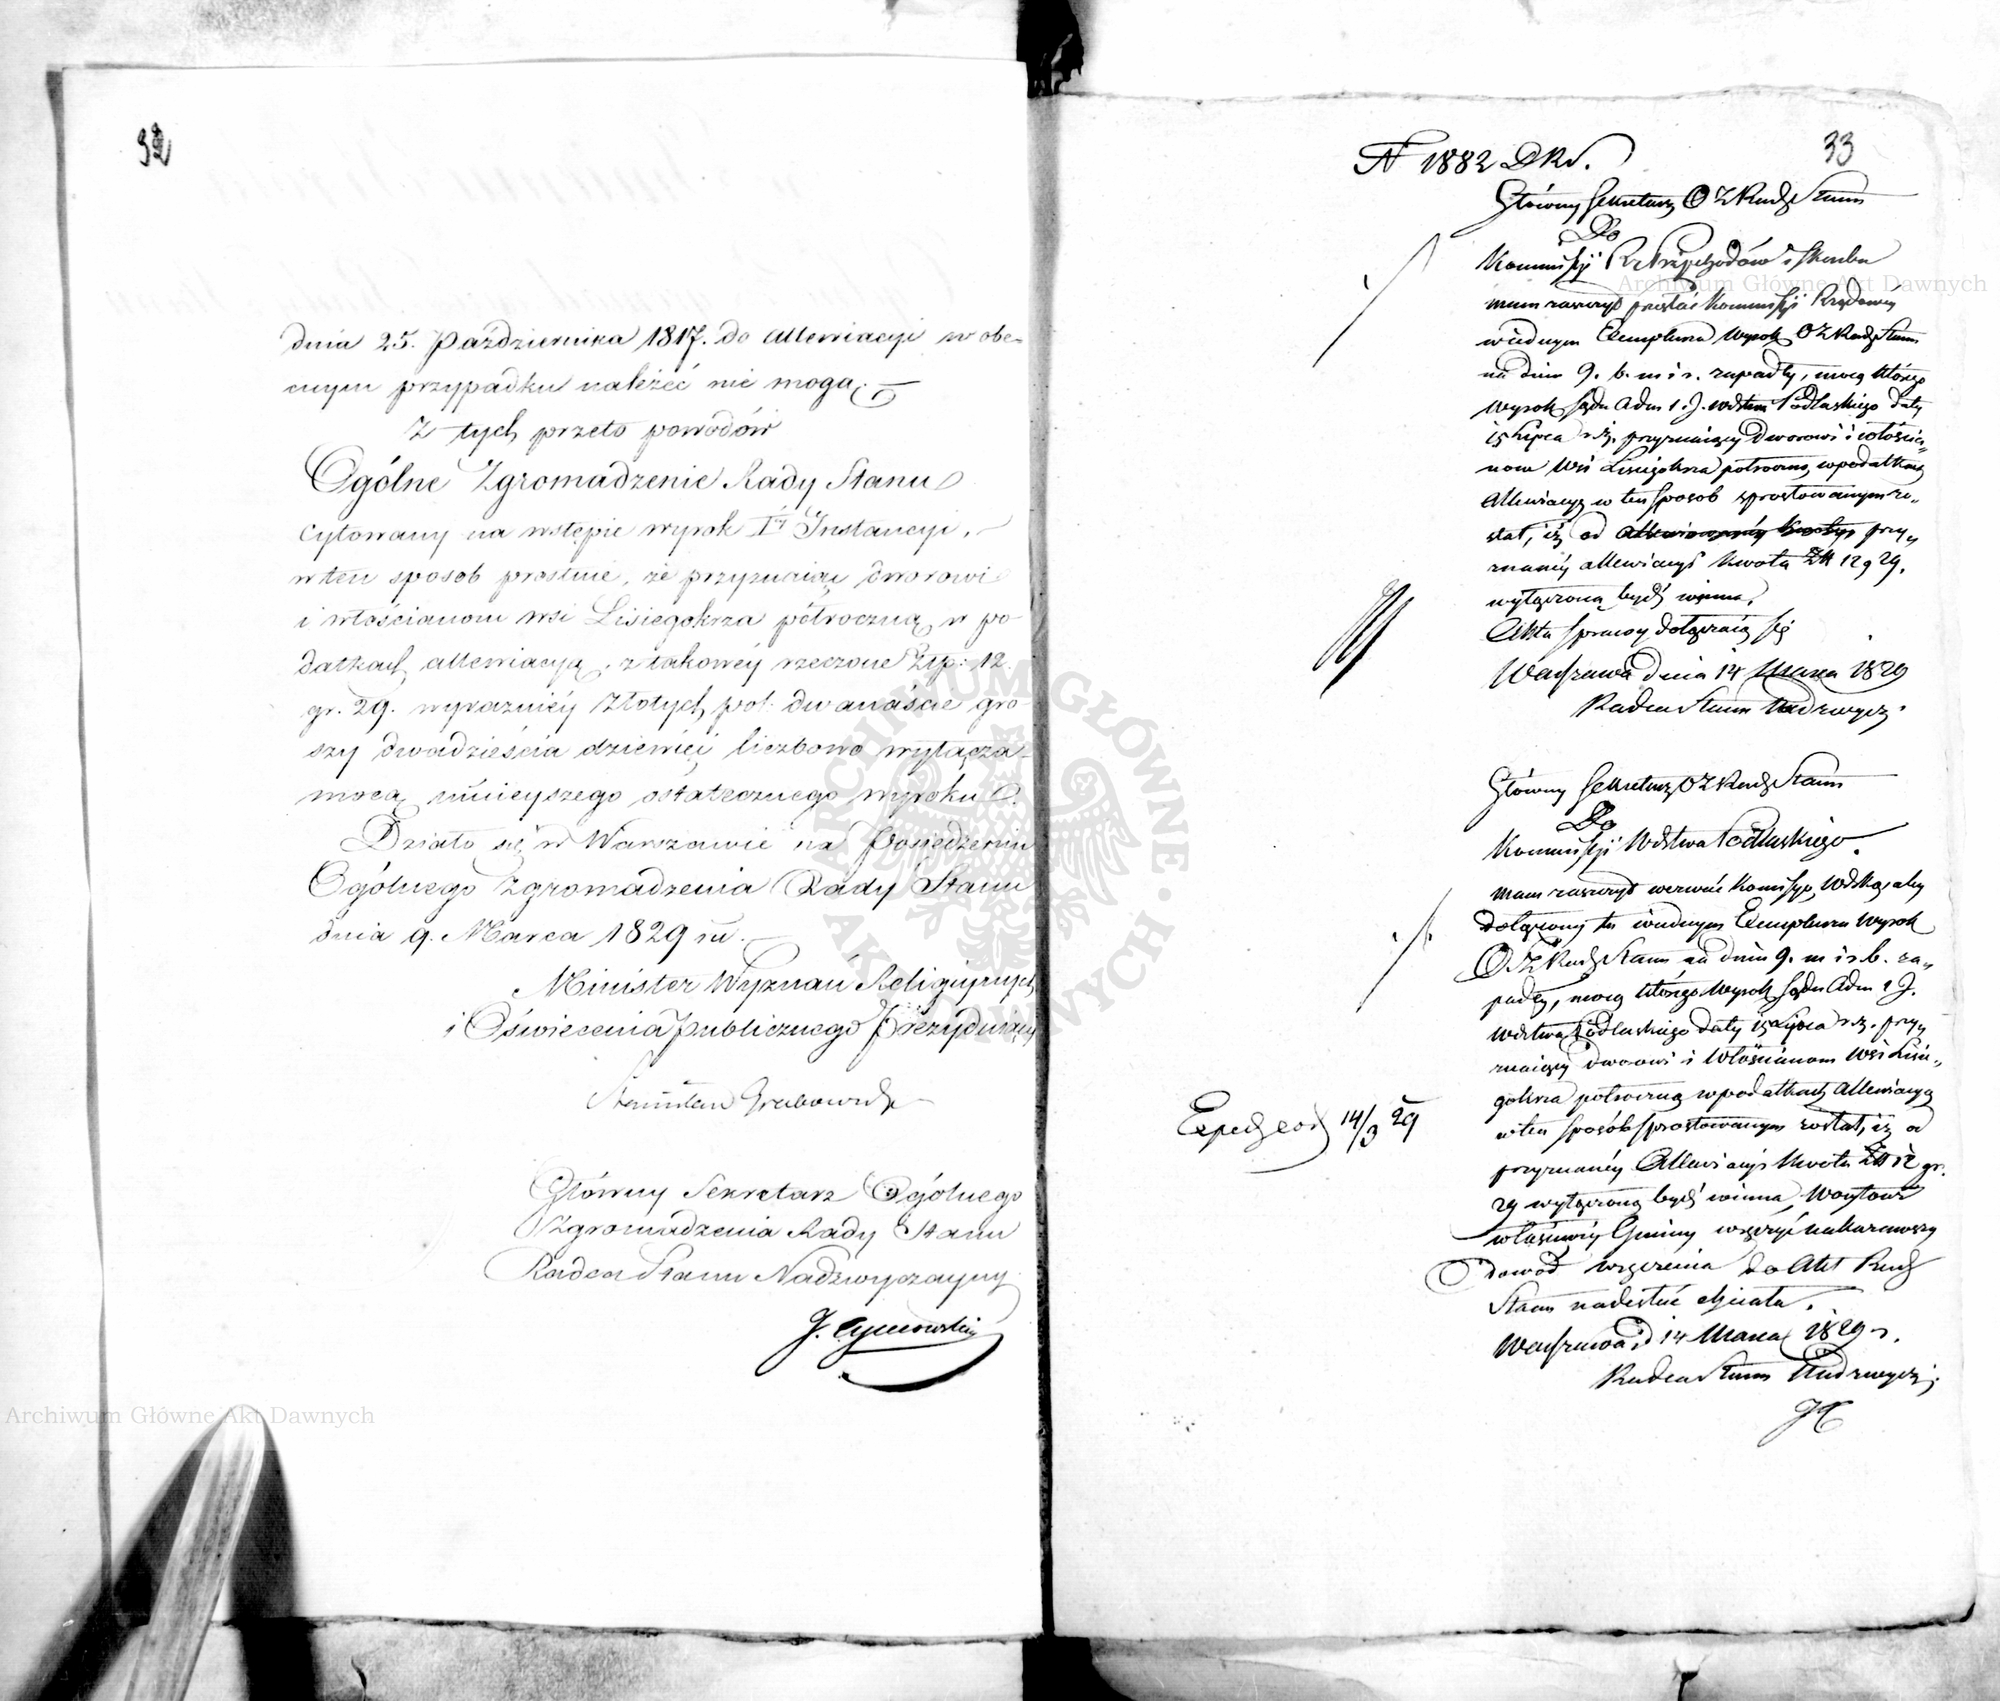 32
dnia 25. Października 1817. do allewiacyi w obe-
cnym przypadku należeć nie mogą.
Z tych przeto powodów
Ogólne Zgromadzenie Rady Stanu
cytowany na wstępie wyrok I Instancyi,
w ten sposób prostuie, że przyznaiąc dworowi
i włościanom wsi Lisiegokrza półroczną w po-
datkach allewiacyą, z takowéy rzeczone Złp: 12.
gr. 29. wyraźniéy Złotych pol. dwanaście gro-
szy dwadzieścia dziewięć liczbowo wyłącza
mocą ninieyszego ostatecznego wyroku.
Działo się w Warszawie na Posiedzeniu
Ogólnego Zgromadzenia Rady Stanu
dnia 9. Marca 1829 ru.
Minister Wyznań Religijnych
i Oświecenia Publicznego Prezyduiący
Stanisław Grabowski
Główny Sekretarz Ogólnego
Zgromadzenia Rady Stanu
Radca Stanu Nadzwyczayny
J.
33
N 1882 DRS.
Główny Sekretarz O Z Rady Stanu
Do
Kommissyi R Przychodów i Skarbu
mam zaszczyt przesłać Kommissyi Rządowéy
w iednym Exemplarzu Wyrok O Z Rady Stanu
na dniu 9. b. m i r. zapadły, mocą którego
Wyrok Sądu Adm 1. J. Wdztwa Podlaskiego daty
15 Lipca r. z. przyznaiący Dworowi i włościa-
nom Wsi Lisiegokrza półroczną w podatkach
Allewiacyą w ten sposób sprostowanym zo-
stał, iż od przy-
znanéy allewiacyi kwota Zł 12 g 29.
wyłączoną bydź winna.
Akta sprawy dołączaią się
Warszawa dnia 14 Marca 1829
Radca Stanu Nadzwyczy.
Główny Sekretarz O Z Rady Stanu
Do
Kommissyi Wdztwa Podlaskiego.
mam zaszczyt wezwać Komissyą Wdzką, aby
dołączony tu w iednym Exemplarzu Wyrok
O Z Rady Stanu na dniu 9. m i r. b. za-
padły, mocą którego Wyrok Sądu Adm 1 J.
Wdztwa Podlaskiego daty 15 Lipca r. z. przy-
znaiący dworowi i Włościanom Wsi Lisie-
gokrza półroczną w podatkach Allewiacyą
w ten sposób sprostowanym został, iż od
przyznanéy Allewiacyi kwota Zł 12 gr.
29 wyłączoną bydź winna, Woytowi
właściwéy Gminy wręczyć nakazawszy
dowód wręczenia do Akt Rady
Stanu nadesłać chciała.
Warszawa d 14 Marca 1829 r.
Radca Stanu Nadzwyczy.
JC
Expedyowano 14/3 29
Archiwum Główne Akt Dawnych
Archiwum Główne Akt Dawnych
ARCHIWUM GŁÓWNE AKT DAWNYCH